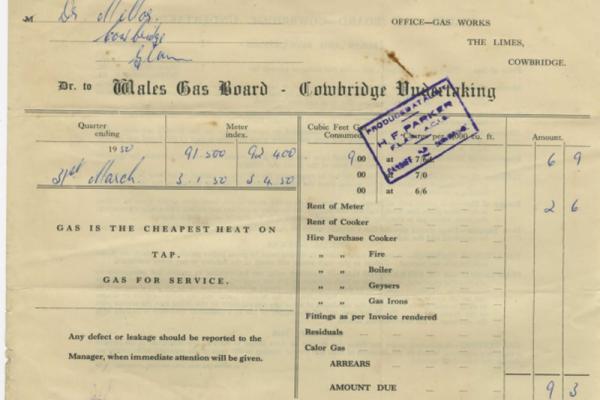 M Dr.
Cowbridge
Glam
OFFICE—GAS WORKS
THE LIMES,
COWBRIDGE.
Dr. to Wales Gas Board - Cowbridge Undertaking
Quarter ending Meter index. Cubic Feet Consumed per 1000 cu. ft. Amount.
1950 91 500 92 400 9 00 at 6 9
31st March 3.1.50 3.4.50 00 7/0
00 at 6/6
PRODUCED AT AUDIT
H. F. PARKER
Rent of Meter 2 6
Rent of Cooker
Hire Purchase Cooker
" " Fire
" " Boiler
" " Geysers
" " Gas Irons
Fittings as per Invoice rendered
Residuals
Calor Gas
ARREARS
AMOUNT DUE 9 3
GAS IS THE CHEAPEST HEAT ON
TAP.
GAS FOR SERVICE.
Any defect or leakage should be reported to the
Manager, when immediate attention will be given.